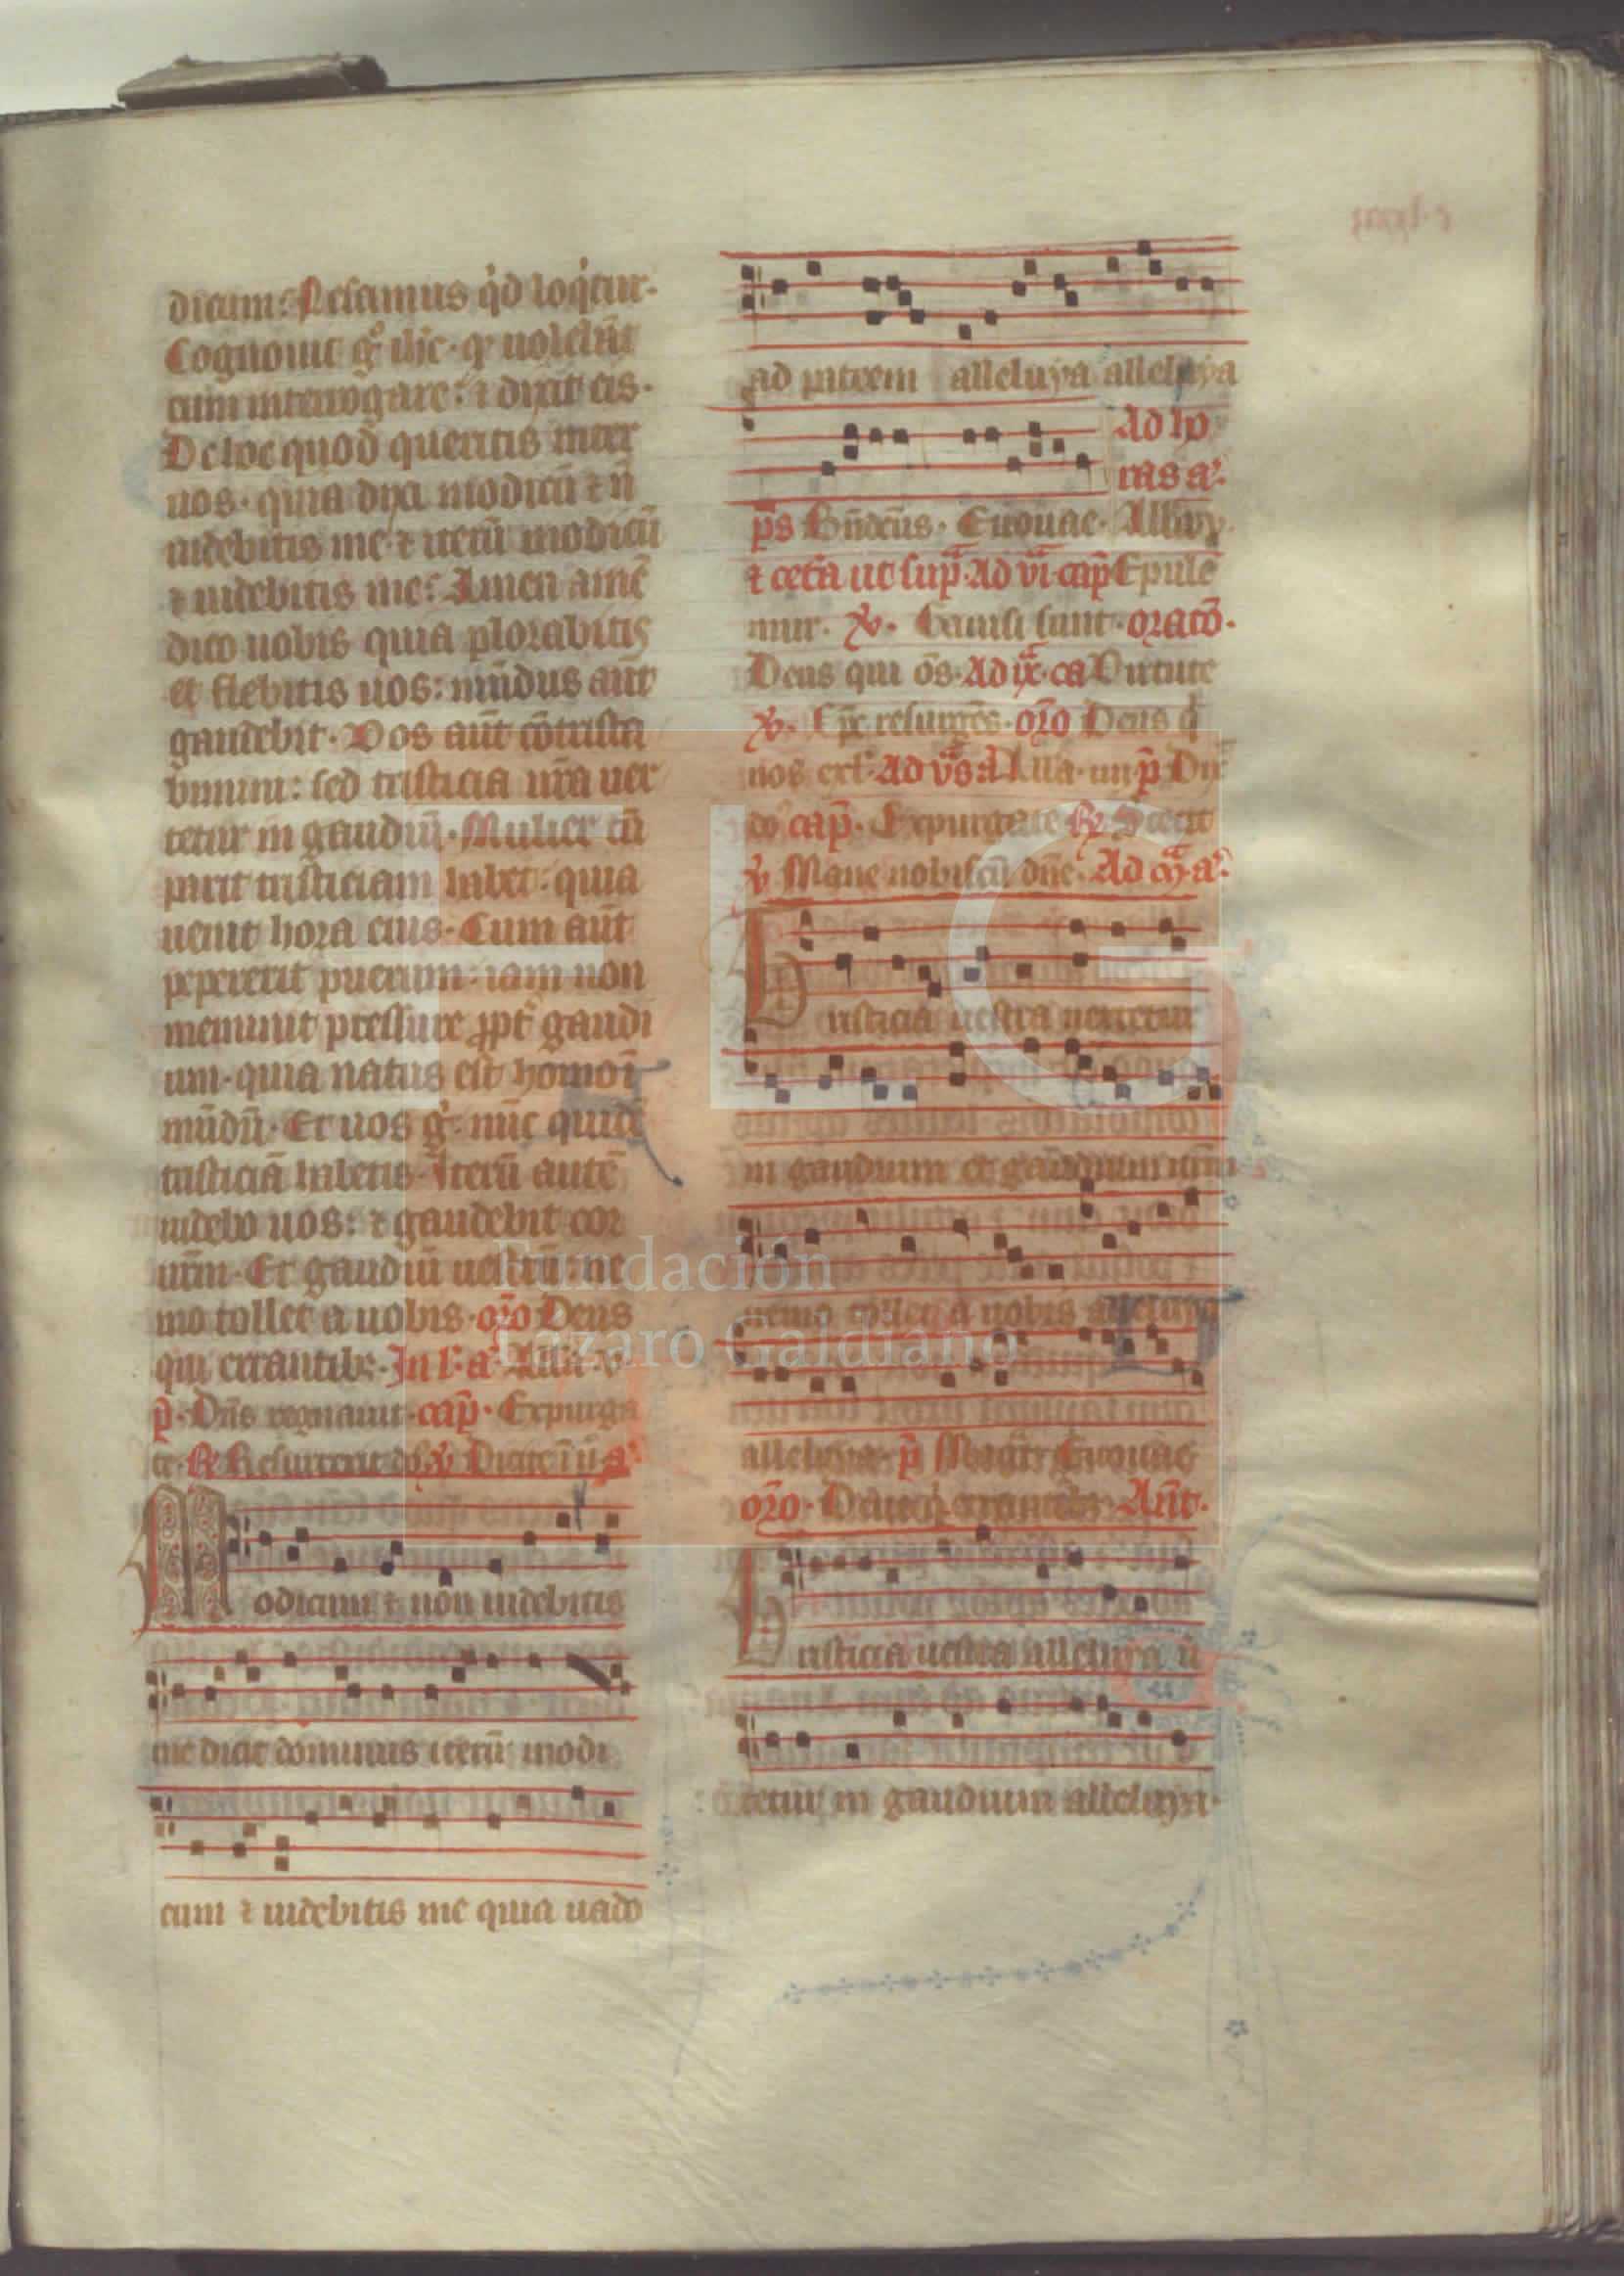 dicam: Nescimus qd loqtur.
Cognovit g ihc. q volebāt
eum interrogare: ⁊ dixit eis.
De hoc quod queritis inter
vos. quia dixi modicū ⁊ ñ
videbitis me. ⁊ iterū modicū
⁊ videbitis me: Amen amē
dico vobis quia plorabitis
et flebitis vos: mūdus aūt
gaudebit. Vos aūt cōtrista
bimini: sed tristicia vr̄a ver
tetur in gaudiū. Mulier cū
parit tristiciam habet. quia
venit hora eius. Cum aūt
pepererit puerum. iam non
meminit pressure ppt gaudi
um. quia natus est homo ī
mūdū. Et vos g: nūc quidē
tristiciā habetis. Iterū autē
videbo vos: ⁊ gaudebit cor
vr̄m. Et gaudiū vestrū: ne
mo tollet a vobis. orō Deus
qui errantibꝫ. In l. a
p̄. Dn̄s regnavit. cap̄. Expurga
te. ℟ Resurrexit ℣ Dicite ī a
Modicum ⁊ non videbitis
me dicit dominus iterū modi
cum ⁊ videbitis me quia vado
ad patrem alleluya alleluya
Ad ho
ras a.
ps Evovae.
⁊ cetā ut sup. Ad vi cap Epule
mur. ℣. Gavisi sunt. oracō.
Deus qui ōs. Ad ix. ca Virtute
℣. resurgēs. orō Deus q
nos Ad vs a p̄
cap̄. Expurgate ℟ Stetit
℣ Mane nobiscū dn̄e. Ad m̄. a.
Tristicia vestra vertetur
in gaudium et gaudium vr̄m
nemo tollet a vobis alleluya
alleluya. p̄ Magn̄ Evovae
orō. Deus q errantibꝫ. Añt.
Tristicia vestra alleluya v̄
tetur in gaudium alleluya.
Fundación
Lázaro Galdiano
FLG